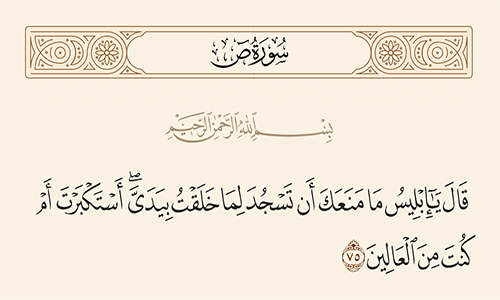 سُورَةُ صٓ
بِسْمِ ٱللَّهِ ٱلرَّحْمَٰنِ ٱلرَّحِيمِ
قَالَ يَٰٓإِبْلِيسُ مَا مَنَعَكَ أَن تَسْجُدَ لِمَا خَلَقْتُ بِيَدَىَّ ۖ أَسْتَكْبَرْتَ أَمْ
كُنتَ مِنَ ٱلْعَالِينَ ٧٥